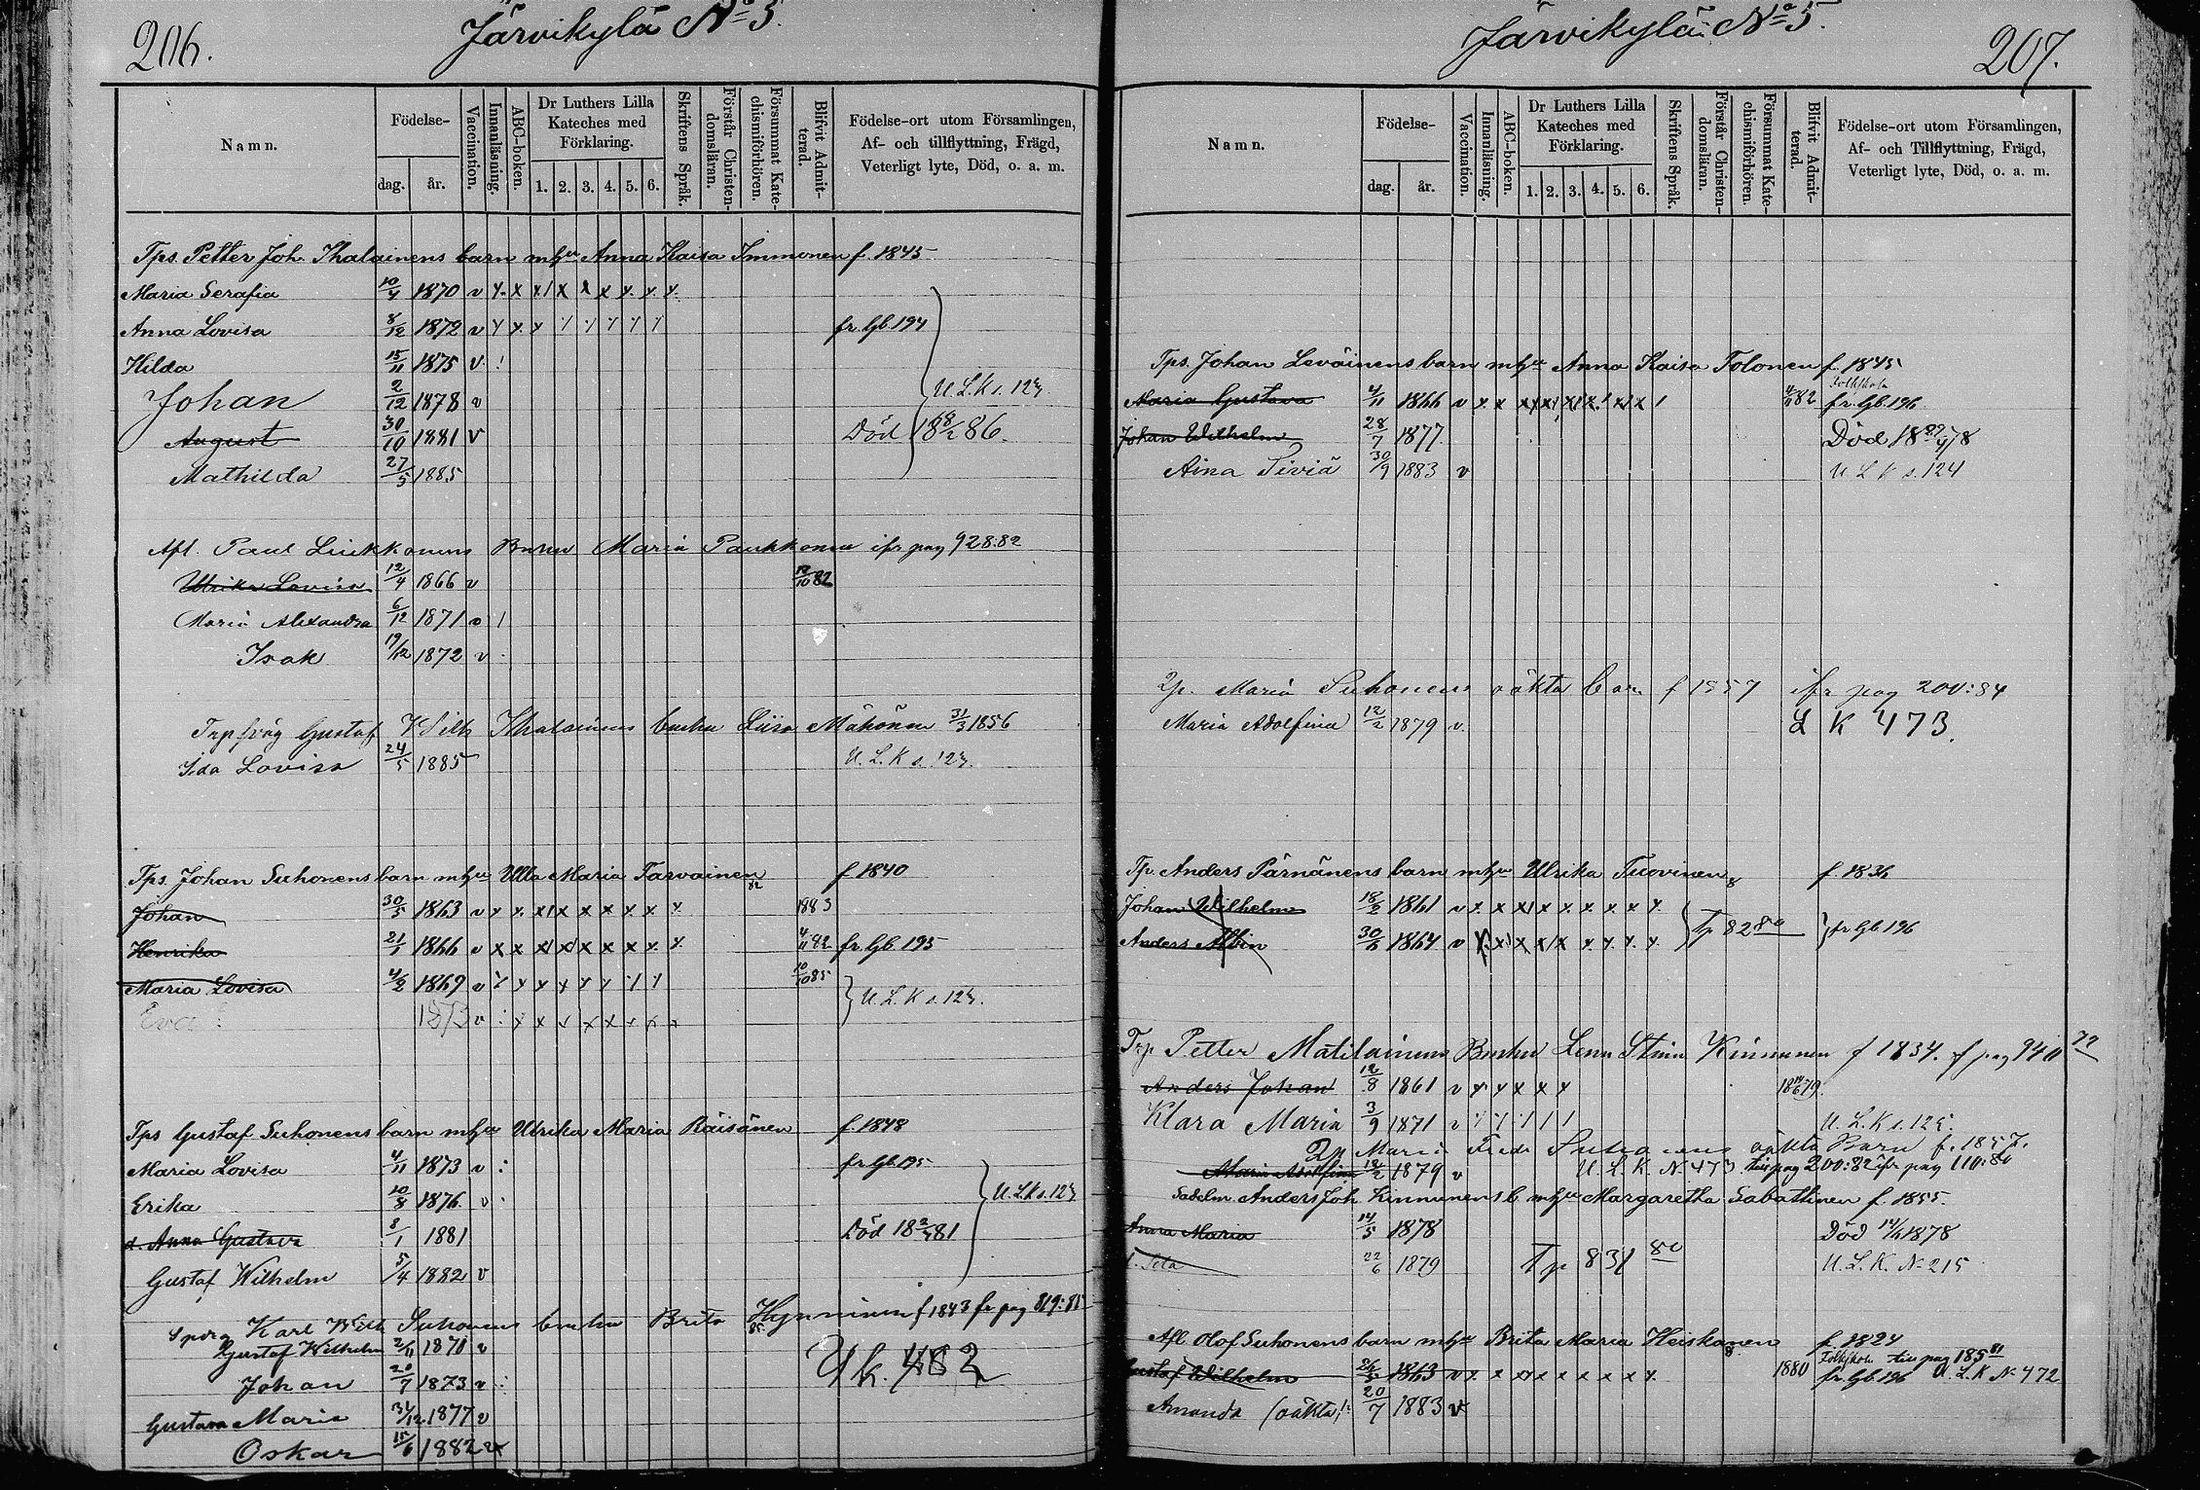 206.
Järvikylä No 5.
Namn.
Födelse-
dag.
år.
Vaccination.
Innanläsning.
ABC-boken.
Dr Luthers Lilla Kateches med Förklaring.
1. 2. 3. 4. 5. 6.
Skriftens Språk.
Förstår Christendomsläran.
Försummat Katechismiförhören.
Blifvit Admitterad.
Födelse-ort utom Församlingen, Af- och tillflyttning, Frägd, Veterligt lyte, Död, o. a. m.
Tps. Petter Joh. Ihalainens barn mhu Anna Kaisa Immonen f. 1845
Maria Serafia 10/4 1870 v
Anna Lovisa 8/12 1872 v fr. Gb. 194
Hilda 15/11 1875 v
Johan 2/12 1878 v U. L. K s. 123
August 30/10 1881 v Död 18 /2 86.
Mathilda 27/5 1885
Afl. Paul Liukkonens Barn Maria Paukkonen ifr pag 928:82
Ulrika Lovisa 12/4 1866 v /10 82
Maria Alexandra 6/12 1871 v
Isak 19/12 1872 v
Gustaf Wilh Ihalainens Liisa Mähönen 31/3 1856
Ida Lovisa 24/5 1885 U. L. K s. 123
Tps. Johan Suhonens barn mhu Ulla Maria Tarvainen f. 1840
Johan 30/5 1863 v 1883
Henrika 21/1 1866 v 4/11 82 fr. Gb. 195
Maria Lovisa 4/2 1869 v 10/10 85 U. L. K s. 123.
Eva 1873 v
Tps Gustaf Suhonens barn mhu Ulrika Maria Räisänen f. 1848
Maria Lovisa 4/11 1873 v fr. Gb. 195
Erika 10/8 1876 v U. L. K s. 123
d. Anna Gustava 8/1 1881 Död 18 81
Gustaf Wilhelm 5/4 1882 v
Karl Wilh Suhonens Brita Hynninen f 1843 fr pag 819:85
Gustaf Wilhelm 2/11 1870 v
Johan 1873 v U k. 482
Gustava Maria /12 1877 v
Oskar 15/6 1882 v
207.
Järvikylä No 5.
Namn.
Födelse-
dag.
år.
Vaccination.
Innanläsning.
ABC-boken.
Dr Luthers Lilla Kateches med Förklaring.
1. 2. 3. 4. 5. 6.
Skriftens Språk.
Förstår Christendomsläran.
Försummat Katechismiförhören.
Blifvit Admitterad.
Födelse-ort utom Församlingen, Af- och Tillflyttning, Frägd, Veterligt lyte, Död, o. a. m.
Tps. Johan Leväinens barn mhu Anna Kaisa Tolonen f. 1845
Maria Gustava 4/11 1866 v 4/11 82 Folkskola fr. Gb. 196
Johan Wilhelm 28/7 1877 Död 18 78
Aina Siviä 30/9 1883 v U L K s. 124
Maria Suhonens oäkta barn f 1857 ifr pag 200:84
Maria Adolfina 12/2 1879 v L K 473.
Tp. Anders Pärnänens barn mhu Ulrika Tuovinen f. 1836
Johan Wilhelm 18/2 1861 v
Anders Albin 30/6 1864 v Tp 82 80 fr. Gb. 196
Trp Petter Matilainens Barn Lena Stina Kinnunen f 1834. f pag 940 79
Anders Johan 12/8 1861 v 18 79
Klara Maria 3/9 1871 v U. L. K s. 125.
Maria Fredr Suhonens oäkta Barn f. 1857.
Maria Adolfina 12/2 1879 v U. L. K. N 473 till pag 200:82 ifr pag 110:80
Sadelm. Anders Joh. Kinnunens b. mhu Margaretha Sabattinen f. 1855.
Anna Maria 14/5 1878 Död 1878
22/6 1879 Tp 831 80 U. L. K. No 215
Afl. Olof Suhonens barn mhu Brita Maria Heiskanen f. 1824
Gustaf Wilhelm 26/5 1863 v 1880 Folkskol. till pag 185 81 fr. Gb. 196 U. L. K No 472
Amanda (oäkta) 20/7 1883 v